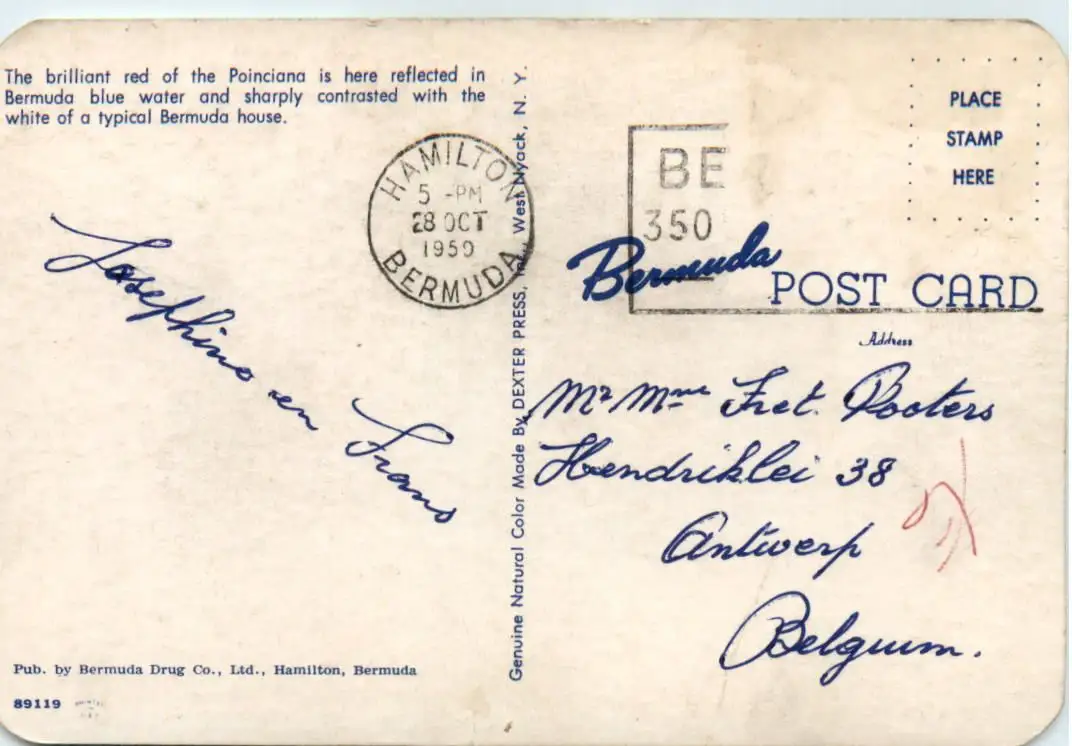 The brilliant red of the Poinciana is here reflected in
Bermuda blue water and sharply contrasted with the
white of a typical Bermuda house.
HAMILTON
5 -PM
28 OCT
1959
BERMUDA
Josephine en Frans
Pub. by Bermuda Drug Co., Ltd., Hamilton, Bermuda
89119
Genuine Natural Color Made By DEXTER PRESS, West Nyack, N. Y.
BE
350
PLACE
STAMP
HERE
Bermuda POST CARD
Address
Mr Mme Fret. Pooters
Hendriklei 38
Antwerp
Belgium.